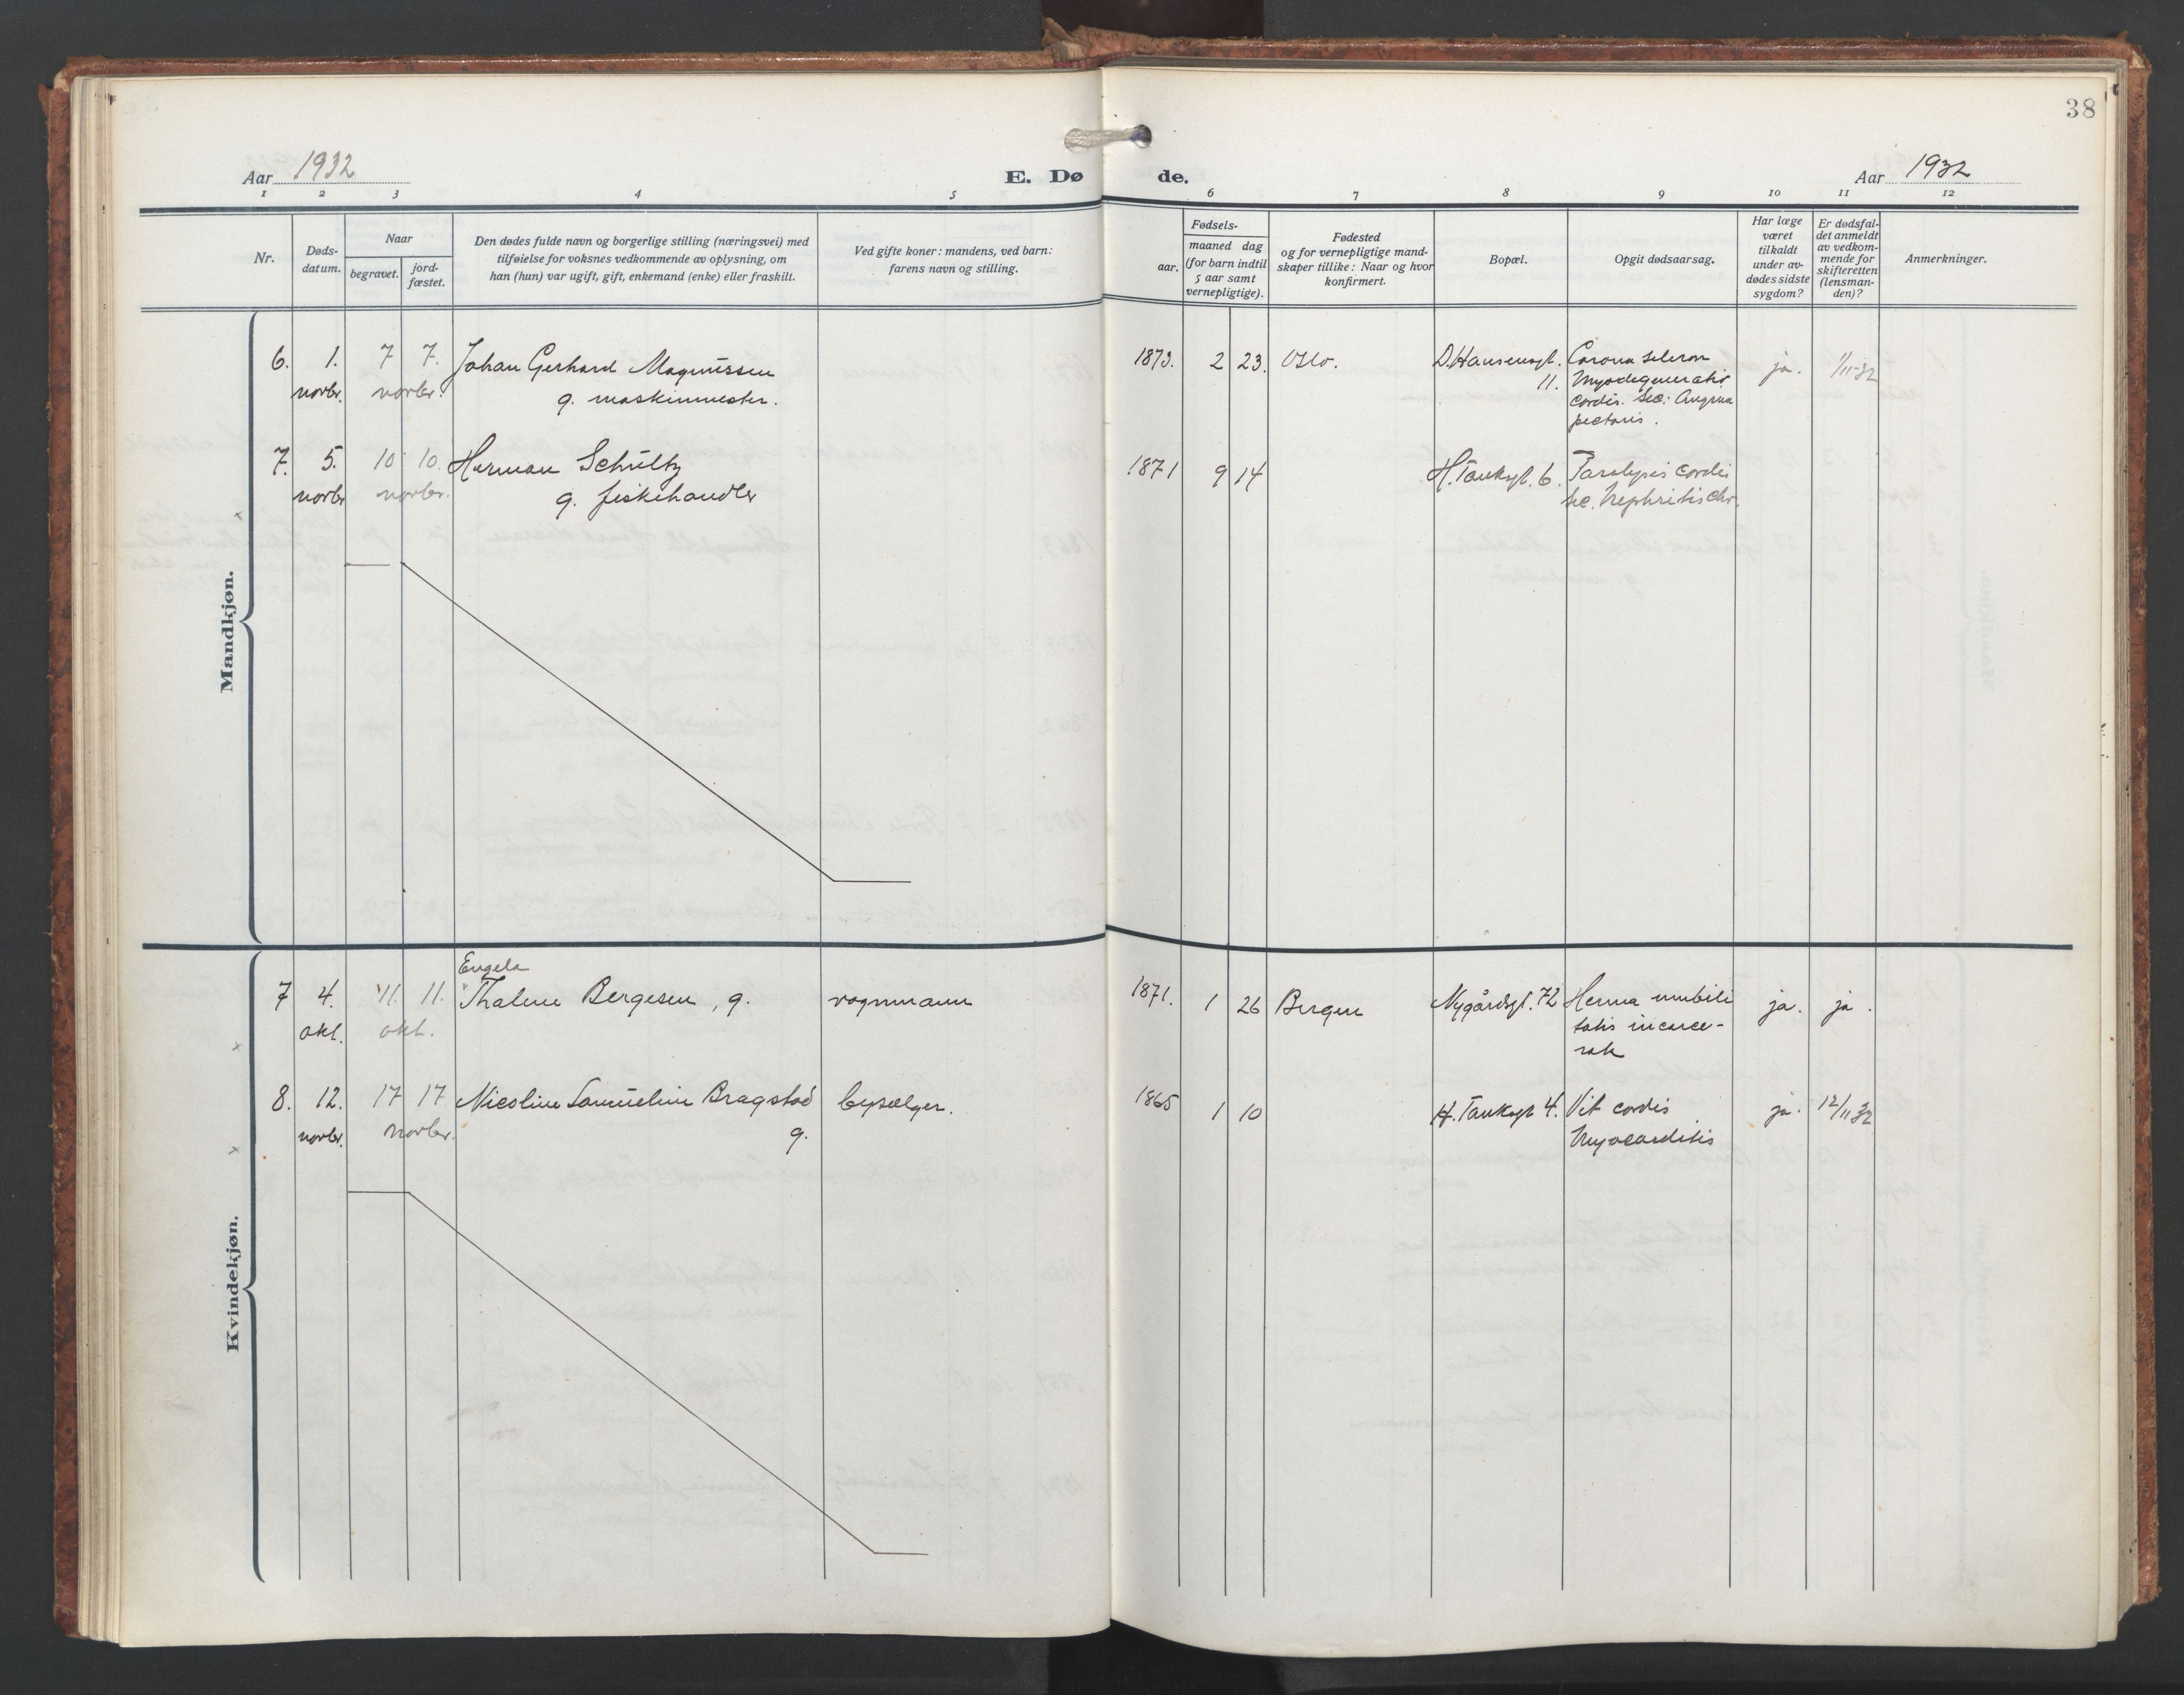 38
Aar 1932
E. Dø de.
Aar 1932
1 2 3 4 5 6 7 8 9 10 11 12
Nr.
Døds-
datum.
Naar
begravet.
jord-
fæstet.
Den dødes fulde navn og borgerlige stilling (næringsvei) med
tilføielse for voksnes vedkommende av oplysning, om
han (hun) var ugift, gift, enkemand (enke) eller fraskilt.
Ved gifte koner: mandens, ved barn:
farens navn og stilling.
Fødsels-
aar.
maaned dag
(for barn indtil
5 aar samt
vernepligtige).
Fødested
og for vernepligtige mand-
skaper tillike: Naar og hvor
konfirmert.
Bopæl.
Opgit dødsaarsag.
Har læge
været
tilkaldt
under av-
dødes sidste
sygdom?
Er dødsfal-
det anmeldt
av vedkom-
mende for
skifteretten
(lensman-
den)?
Anmerkninger.
Mandkjøn.
6. 1. 7 7. Johan Gerhard Magnussen 1873. 2 23. Oslo. D. Hansensgt. Corona scleron ja. 1/11-32
novbr. novbr. g. maskinmester. 11. Myodegeneratio
cordis. Sec: Angina
pectoris.
7. 5. 10 10. Herman Schultz 1871 9 14 H. Tanksgt. 6. Paralysis cordis
novbr novbr. g. fiskehandler sec. Nephritis chr.
Kvindekjøn.
Engela
7 4. 11. 11. Thalene Bergesen, g. vognmann 1871. 1 26 Bergen Nygårdsgt. 72 Hernia umbili ja. ja.
okt. okt. talis incarce-
rak
8. 12. 17 17 Nicoline Samueline Bragstad bysælger. 1865 1 10 H. Tanksgt 4. Vit cordis ja. 12/11 32
novbr. novbr. g. Myocarditis